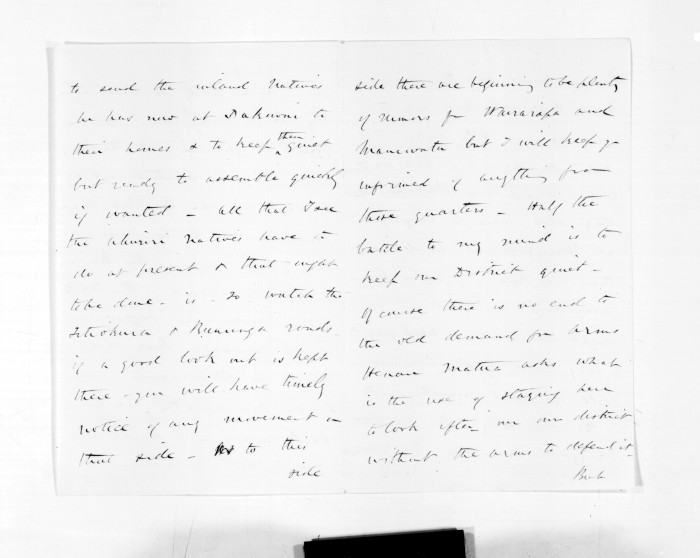 to send the inland Natives
he has now at Pakowai to
their homes & to keep them quiet
but ready to assemble quickly
if wanted - all that I see
the Ahuriri Natives have to
do at present & that ought
to be done - is - to watch the
Titiokura & Runanga roads
if a good look out is kept
there - you will have timely
notice of any movement on
that side - As to this
side
side there are beginning to be plenty
of rumors fm Wairarapa and
Manawatu but I will keep yo
informed of anything from
those quarters - Half the
battle to my mind is to
keep our District quiet -
Of course there is no end to
the old demand for arms
Henare Matua asks what
is the use of staying here
to look after our district
without the arms to defend it -
But